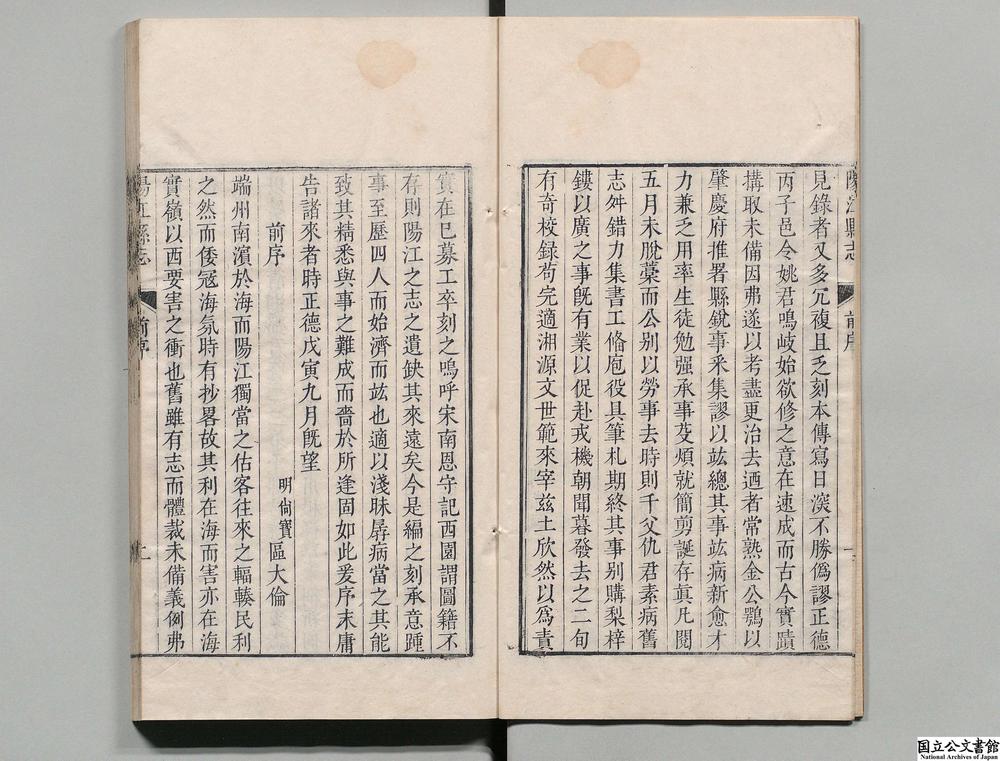 陽江縣志
前序
一
見錄者又多冗複且乏刻本傳寫日深不勝僞謬正德
丙子邑令姚君鳴岐始欲修之意在速成而古今實蹟
搆取未備因弗遂以考盡更治去迺者常熟金公鶚以
肇慶府推署縣銳事釆集謬以竑總其事竑病新愈才
力兼乏用率生徒勉強承事芟煩就簡剪誕存眞凡閱
五月未脫藁而公别以勞事去時則千父仇君素病舊
志舛錯力集書工脩庖役具筆札期終其事别購梨梓
鏤以廣之事旣有業以促赴戎機朝聞暮發去之二旬
有奇校録苟完適湘源文世範來宰兹土欣然以爲責
實在巳募工卒刻之嗚呼宋南恩守記西園謂圖籍不
存則陽江之志之遺缺其來遠矣今是編之刻承意踵
事至歷四人而始濟而竑也適以淺昧孱病當之其能
致其精悉與事之難成而嗇於所逢固如此爰序末庸
告諸來者時正德戊寅九月旣望
前序
明尙寳區大倫
端州南濱於海而陽江獨當之估客往來之輻輳民利
之然而倭冦海氛時有抄畧故其利在海而害亦在海
實嶺以西要害之衝也舊雖有志而體裁未備義例弗
陽江縣志
前序
國立公文書館
National Archives of Japan